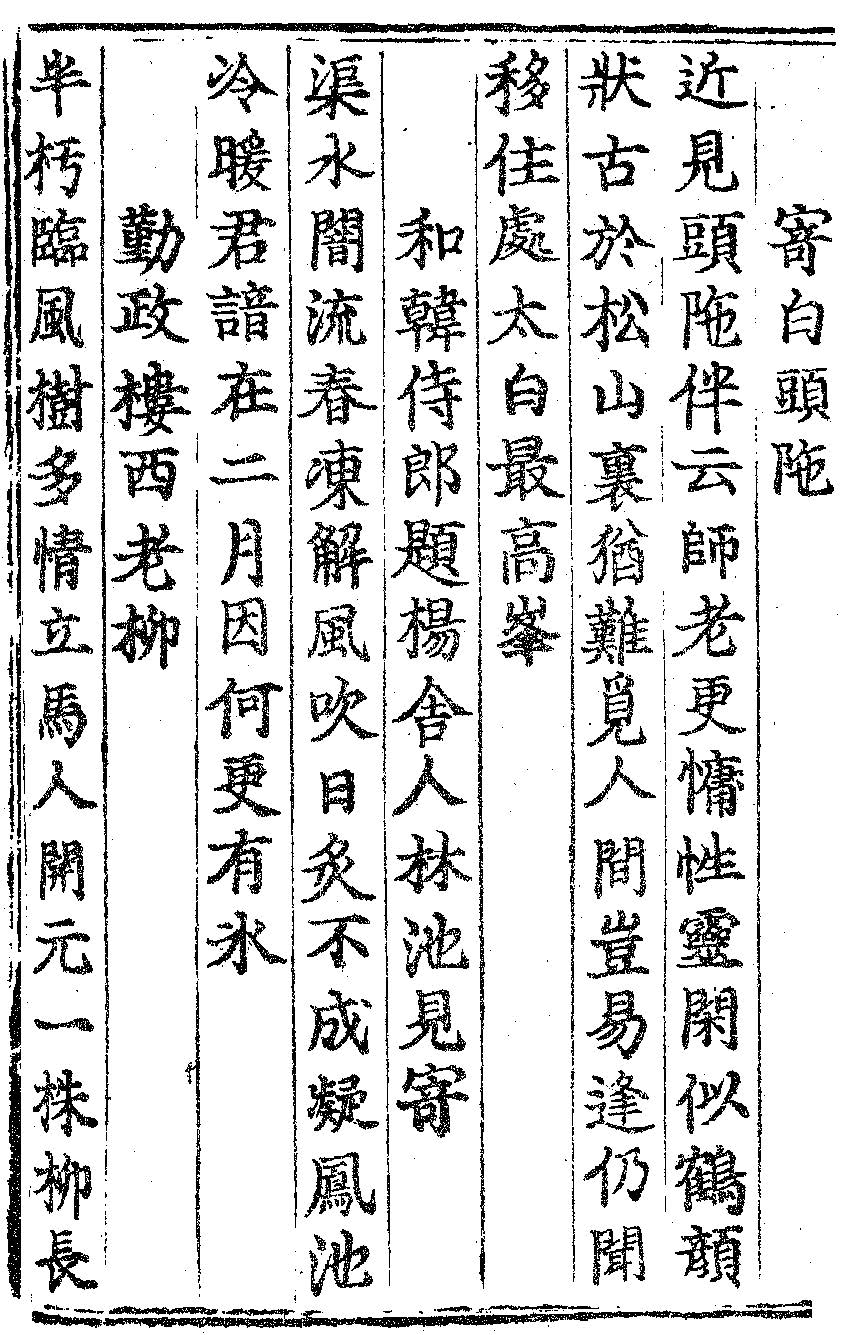 寄白頭陁
近見頭陁伴云師老更慵性靈閑似鶴顔
狀古於松山裏猶難覓人間豈易逢仍聞
移住處太白最高峯
和韓侍郎題楊舍人林池見寄
渠水闇流春凍解風吹日炙不成凝鳳池
冷暖君諳在二月因何更有氷
勤政樓西老柳
半朽臨風樹多情立馬人開元一株柳長